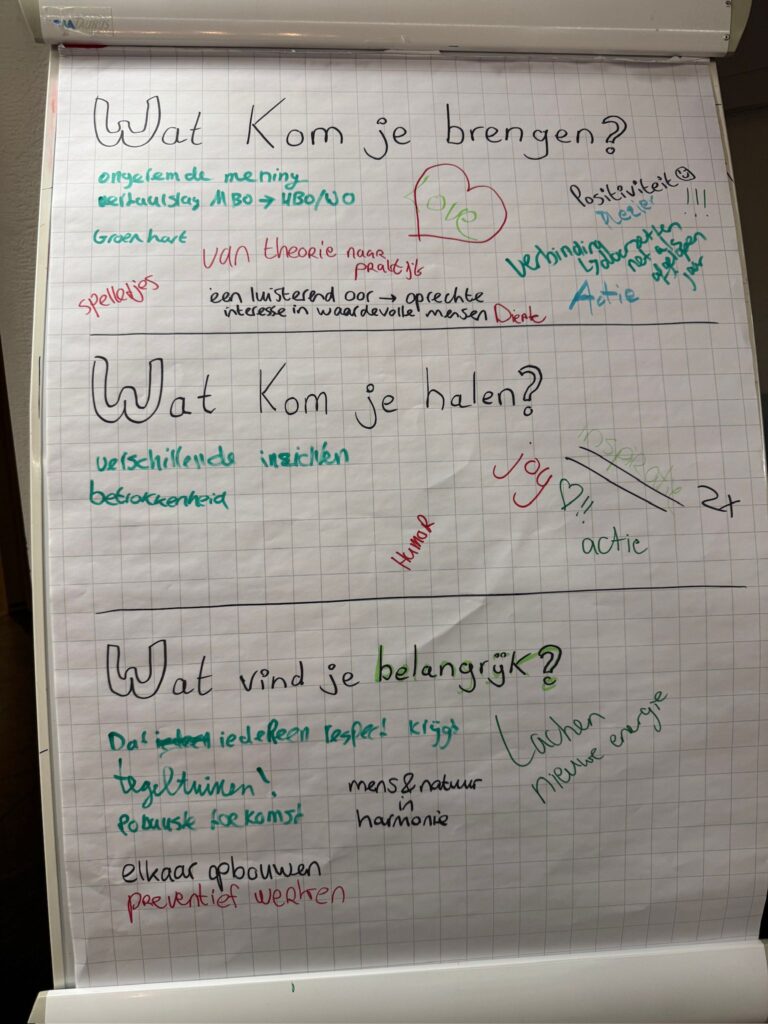 Wat Kom je brengen?
ongeremde mening
vertaalslag MBO → HBO/WO
Groen hart
Love
Positiviteit ☺
Plezier
!!!
van theorie naar
praktijk
verbinding
net als
afgelopen
jaar
Actie
spelletjes
een luisterend oor → oprechte
interesse in waardevolle mensen
Wat Kom je halen?
verschillende inzichten
betrokkenheid
Joy
♡!!
inspiratie
2x
actie
HUMOR
Wat vind je belangrijk?
Dat iedereen respect krijgt
tegeltuinen!
robuuste toekomst
mens & natuur
in
harmonie
Lachen
nieuwe energie
elkaar opbouwen
preventief werken